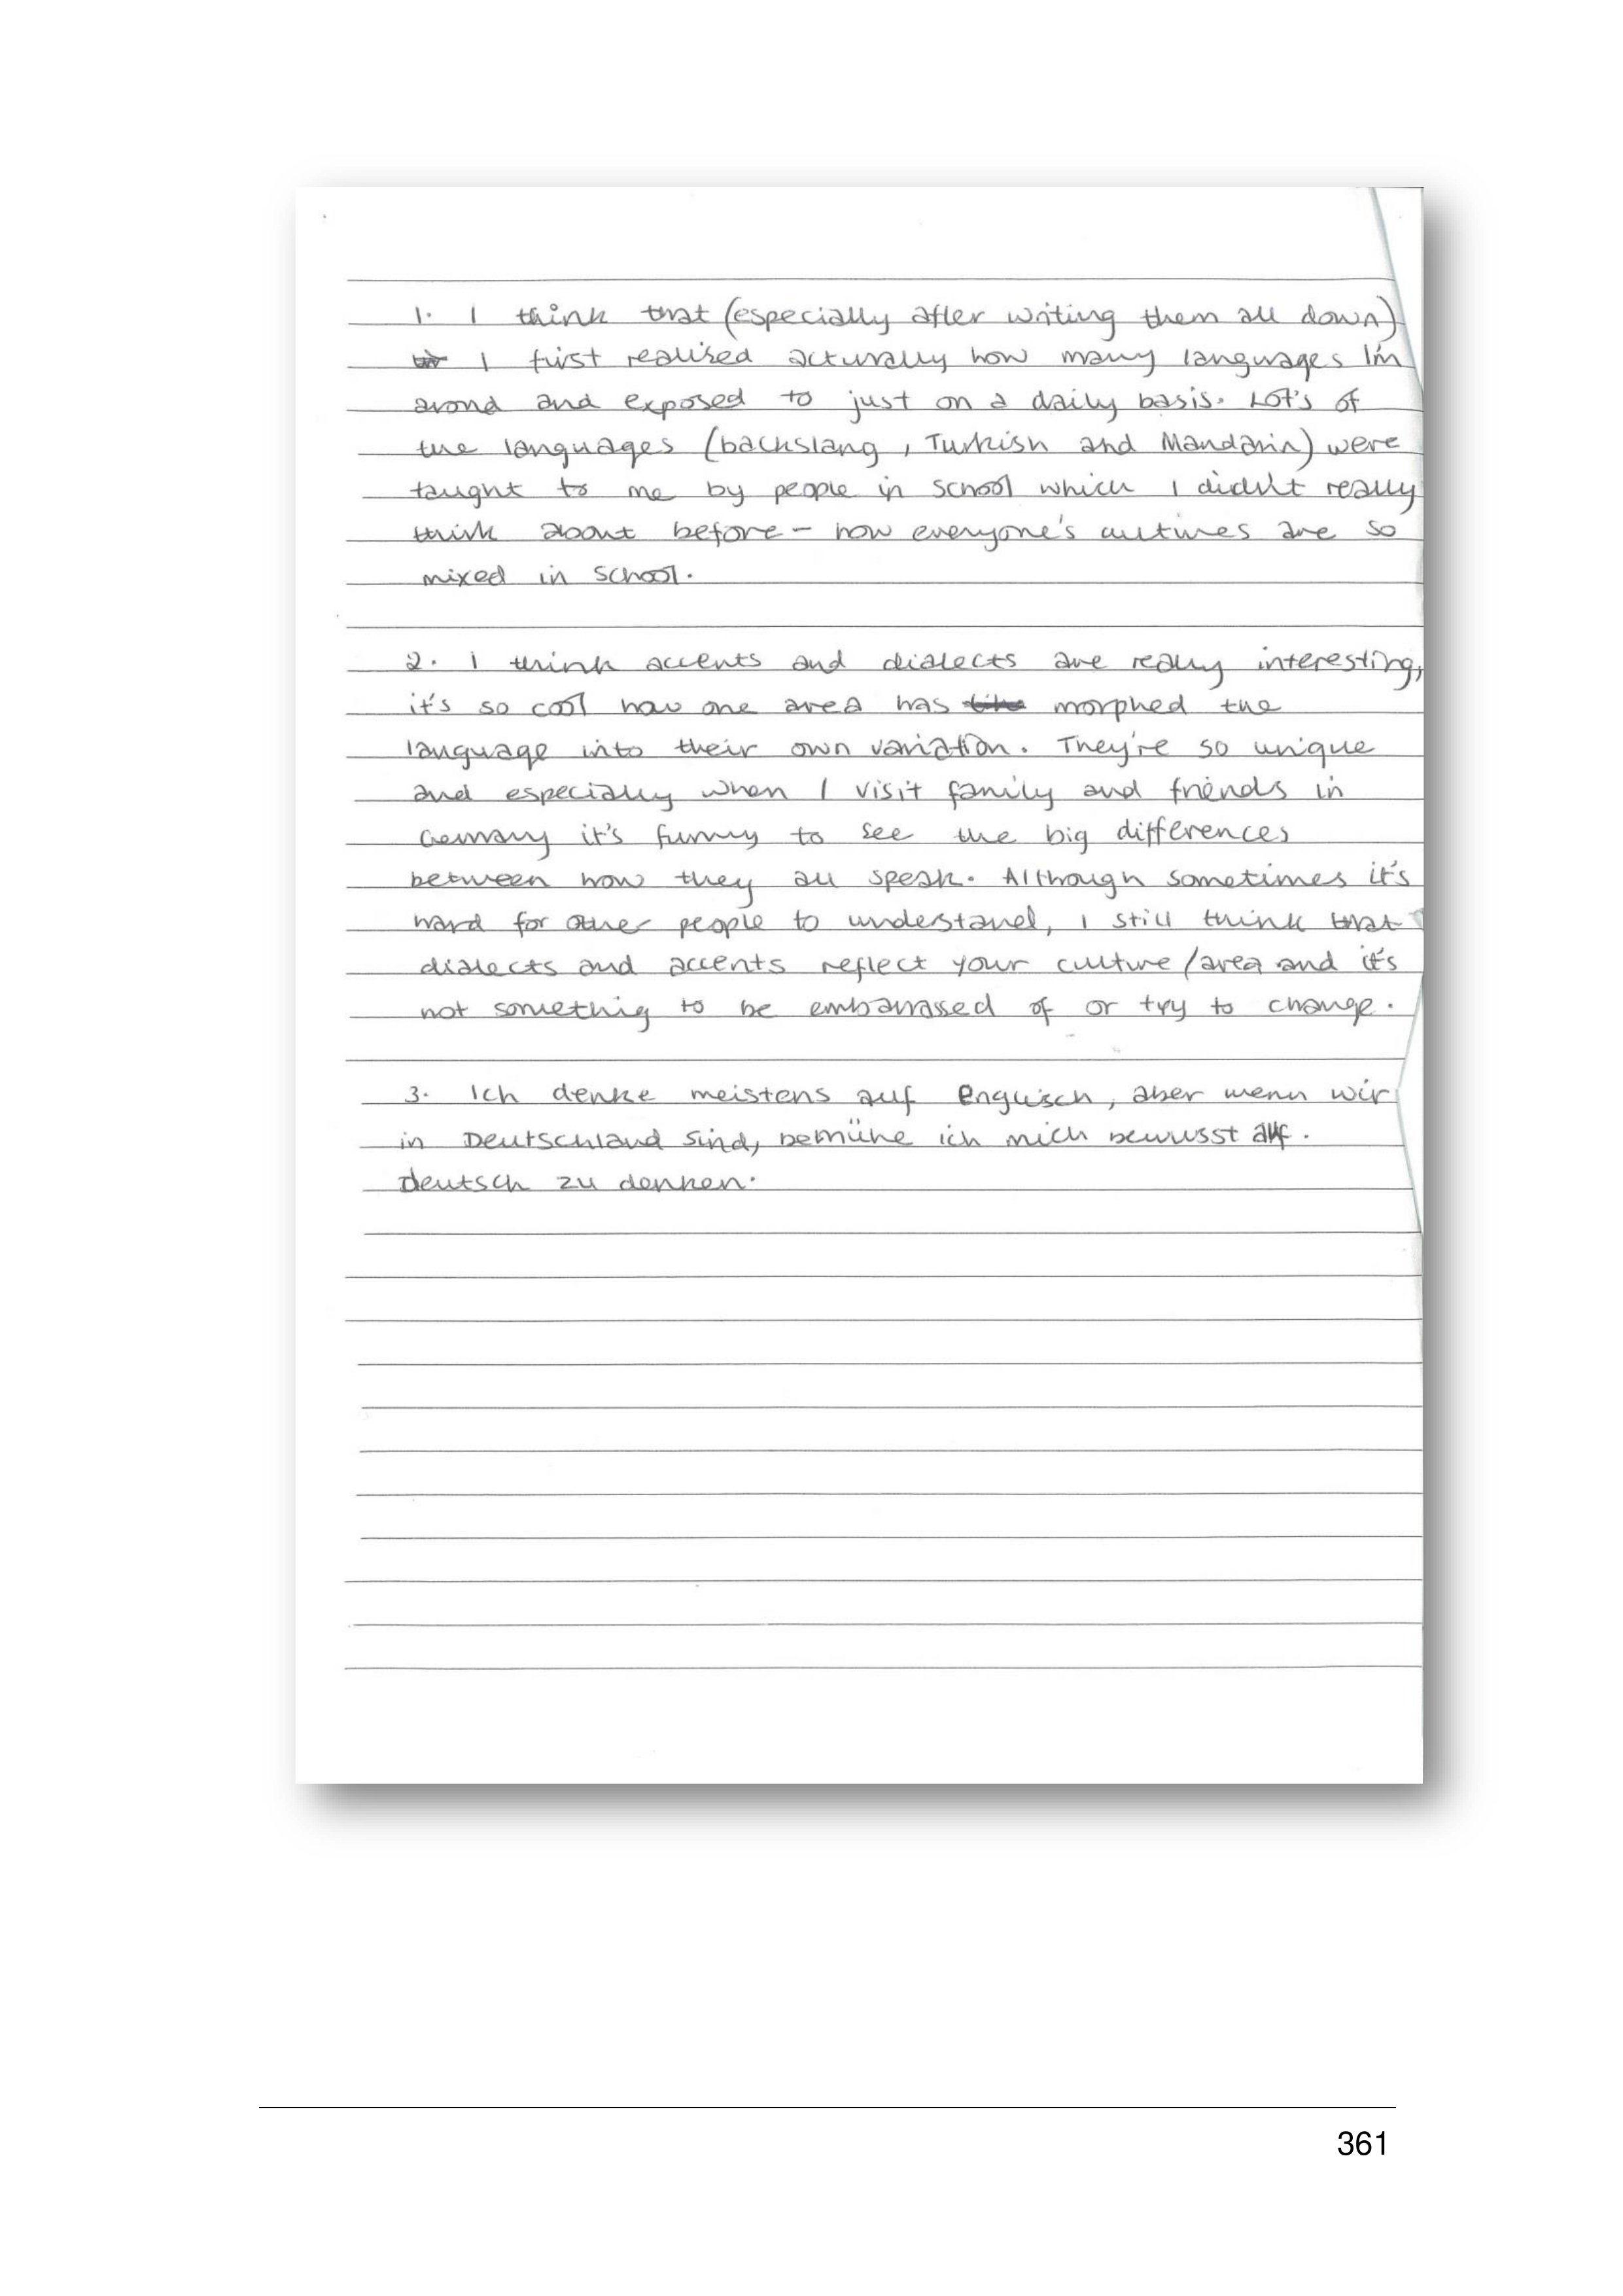 1. I think that (especially after writing them all down)
I first realised acturally how many languages I'm
arond and exposed to just on a daily basis. Lot's of
the languages (backslang, Turkish and Mandarin) were
taught to me by people in school which I didn't really
think about before - how everyone's cultures are so
mixed in school.
2. I think accents and dialects are really interesting,
it's so cool how one area has morphed the
language into their own variation. They're so unique
and especially when I visit family and friends in
Germany it's funny to see the big differences
between how they all speak. Although sometimes it's
hard for other people to understand, I still think that
dialects and accents reflect your culture/area and it's
not something to be embarrassed of or try to change.
3. Ich denke meistens auf Englisch, aber wenn wir
in Deutschland sind, bemühe ich mich bewusst auf.
Deutsch zu denken.
361